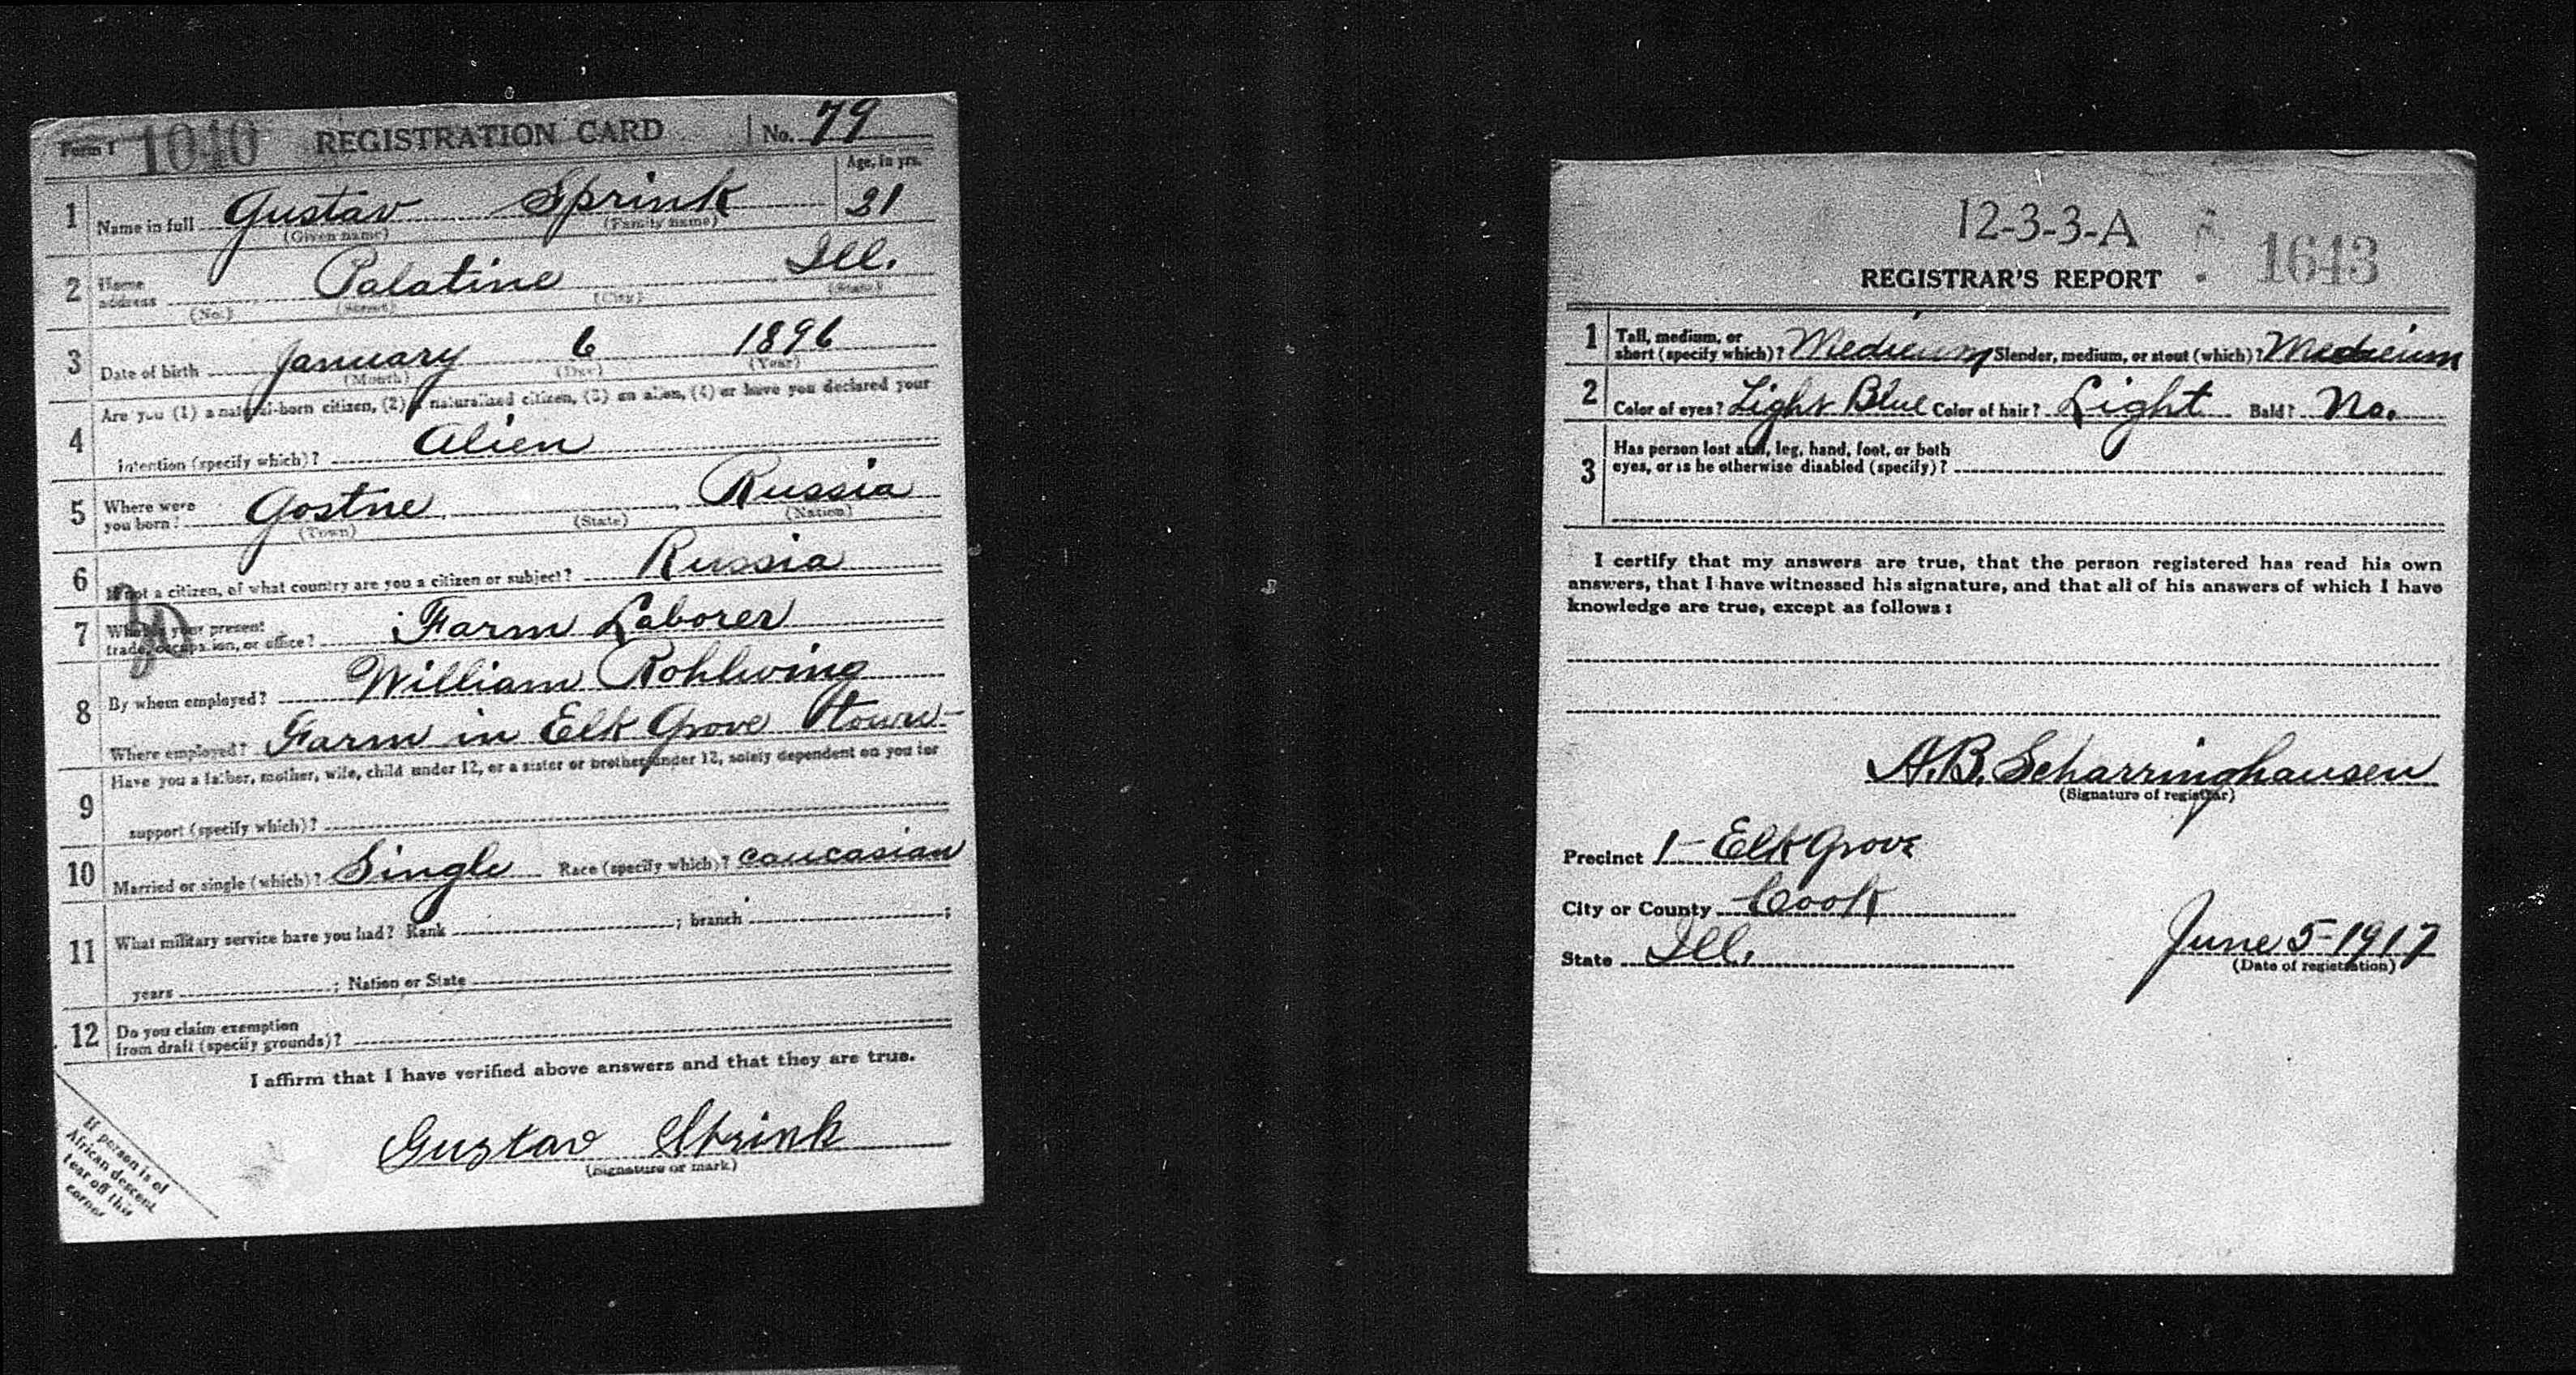 Form 1 1040 REGISTRATION CARD No. 79
1 Name in full Gustav Sprink Age, in yrs. 21
(Given name) (Family name)
2 Home address Palatine Ill.
(No.) (Street) (City) (State)
3 Date of birth January 6 1896
(Month) (Day) (Year)
4 Are you (1) a natural-born citizen, (2) a naturalized citizen, (3) an alien, (4) or have you declared your
intention (specify which)? Alien
5 Where were you born? Gostne Russia
(Town) (State) (Nation)
6 If not a citizen, of what country are you a citizen or subject? Russia
7 What is your present trade, occupation, or office? Farm Laborer
8 By whom employed? William Rohlwing
Where employed? Farm in Elk Grove town
9 Have you a father, mother, wife, child under 12, or a sister or brother under 12, solely dependent on you for
support (specify which)?
10 Married or single (which)? Single Race (specify which)? Caucasian
11 What military service have you had? Rank ; branch ;
years ; Nation or State
12 Do you claim exemption
from draft (specify grounds)?
I affirm that I have verified above answers and that they are true.
Gustav Sprink
(Signature or mark)
If person is of
African descent,
tear off this
corner
12-3-3-A 1643
REGISTRAR'S REPORT
1 Tall, medium, or
short (specify which)? Medieum Slender, medium, or stout (which)? Medieum
2 Color of eyes? Light Blue Color of hair? Light Bald? No.
3 Has person lost arm, leg, hand, foot, or both
eyes, or is he otherwise disabled (specify)?
I certify that my answers are true, that the person registered has read his own
answers, that I have witnessed his signature, and that all of his answers of which I have
knowledge are true, except as follows:
A.B. Scharringhausen
(Signature of registrar)
Precinct 1- Elk Grove
City or County Cook
State Ill.
June 5-1917
(Date of registration)